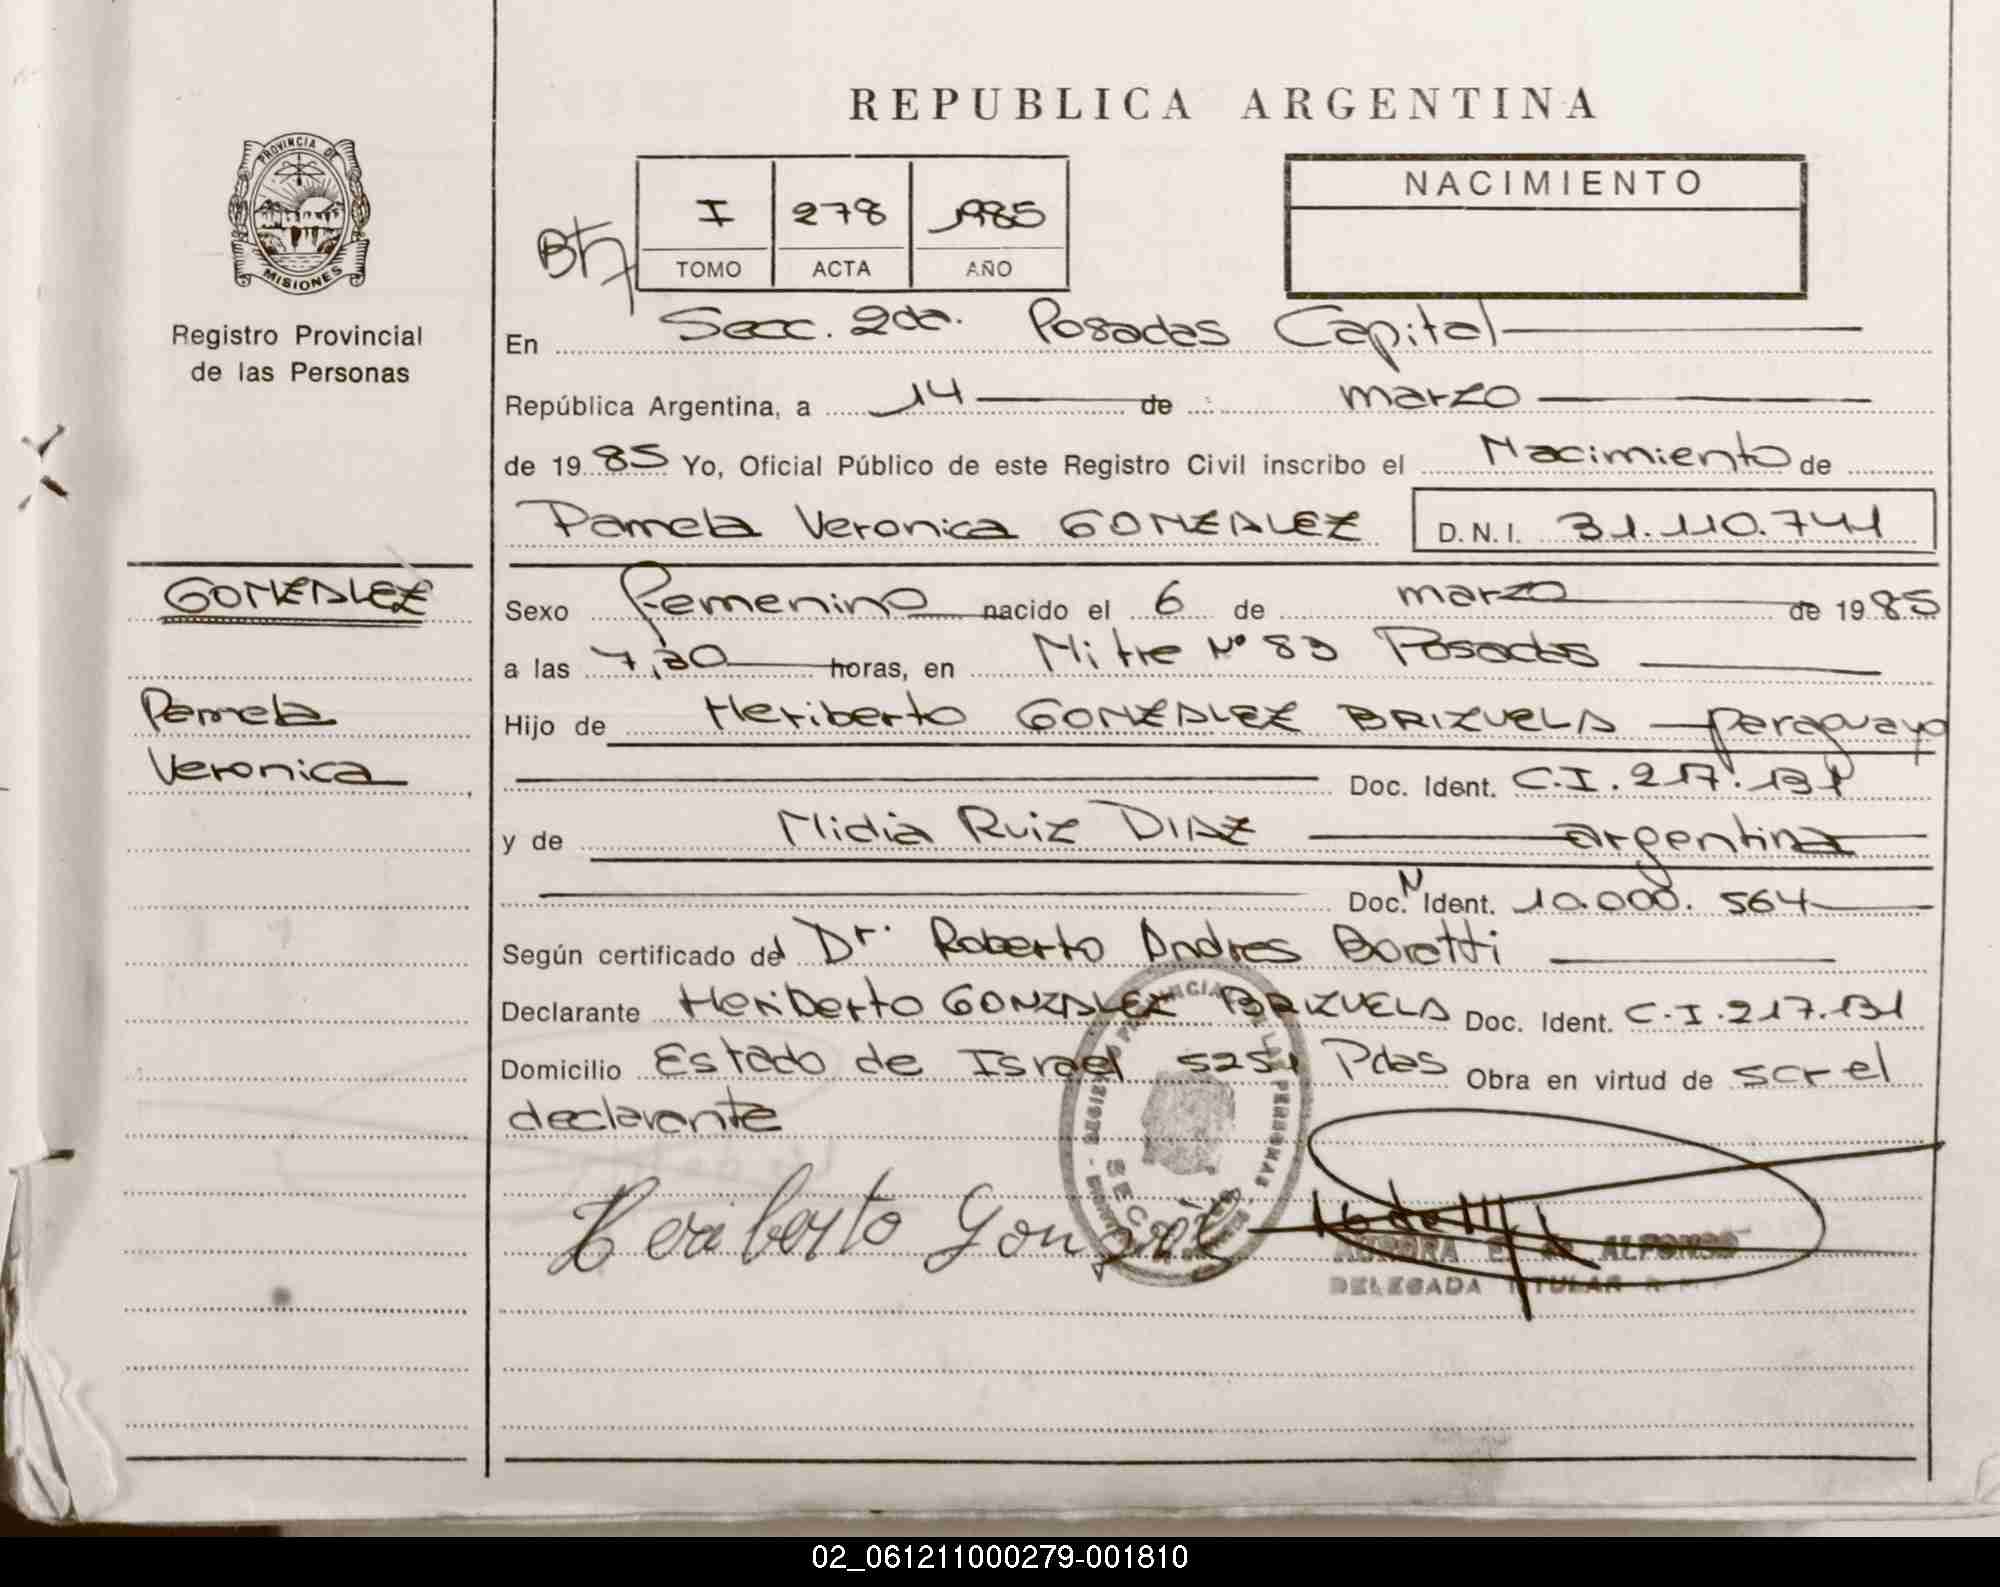 REPUBLICA ARGENTINA
PROVINCIA DE
MISIONES
Registro Provincial
de las Personas
I 278 1985
TOMO ACTA AÑO
NACIMIENTO
En Secc. 2da. Posadas Capital
República Argentina, a 14 de marzo
de 1985 Yo, Oficial Público de este Registro Civil inscribo el Nacimiento de
Pamela Veronica GONZALEZ D.N.I. 31.110.741
GONZALEZ
Pamela
Veronica
Sexo femenino nacido el 6 de marzo de 1985
a las 7,30 horas, en Mitre Nº 83 Posadas
Hijo de Heriberto GONZALEZ BRIZUELA paraguayo
Doc. Ident. C.I. 217.131
y de Nidia Ruiz DIAZ argentina
Doc. N Ident. 10.000.564
Según certificado del Dr. Roberto Andres Boratti
Declarante Heriberto GONZALEZ BRIZUELA Doc. Ident. C.I. 217.131
Domicilio Estado de Israel 5251 Pdas Obra en virtud de scr el
declarante
Heriberto Gonzalez
AURORA E. DE ALFONSO
DELEGADA TITULAR
02_061211000279-001810